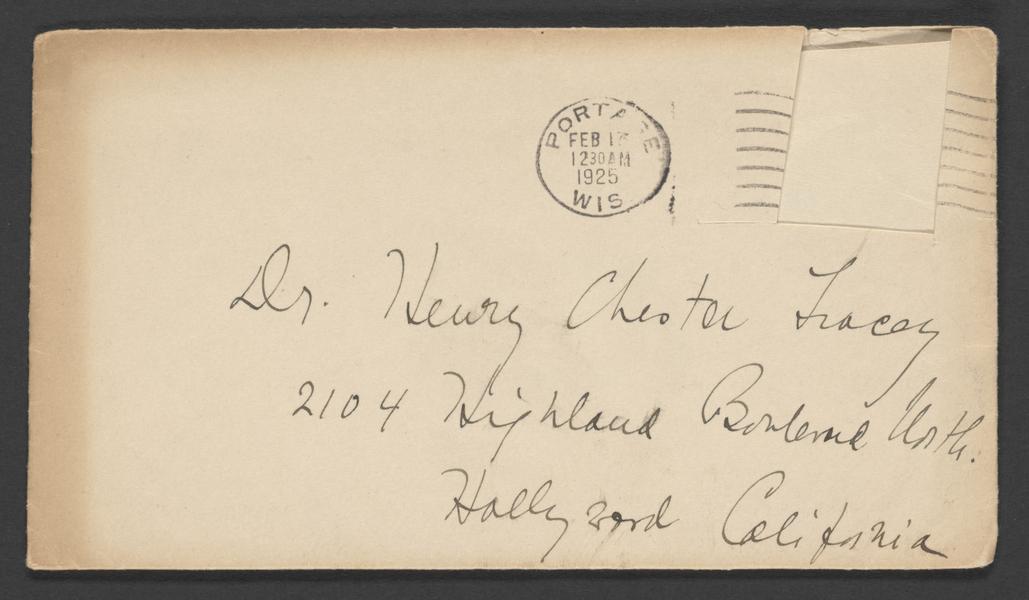 PORTAGE
FEB 17
12 30 AM
1925
WIS
Dr. Henry Chester Tracey
2104 Highland Boulevard North.
Hollywood California